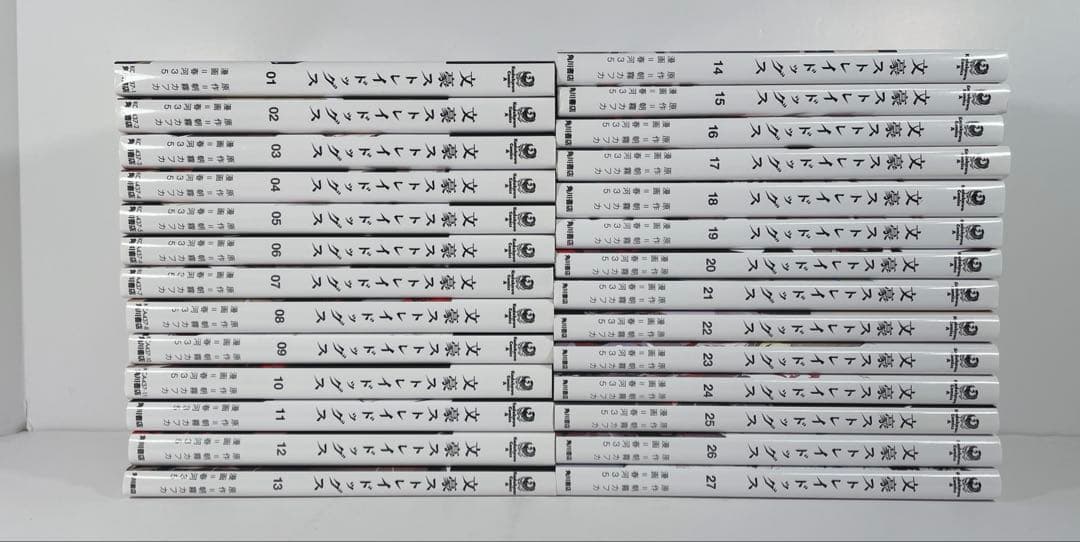 文豪ストレイドッグス 01 漫画=春河35 原作=朝霧カフカ
文豪ストレイドッグス 02 漫画=春河35 原作=朝霧カフカ 角川書店
文豪ストレイドッグス 03 漫画=春河35 原作=朝霧カフカ 角川書店
文豪ストレイドッグス 04 漫画=春河35 原作=朝霧カフカ 角川書店
文豪ストレイドッグス 05 漫画=春河35 原作=朝霧カフカ 角川書店
文豪ストレイドッグス 06 漫画=春河35 原作=朝霧カフカ 角川書店
文豪ストレイドッグス 07 漫画=春河35 原作=朝霧カフカ 角川書店
文豪ストレイドッグス 08 漫画=春河35 原作=朝霧カフカ 角川書店
文豪ストレイドッグス 09 漫画=春河35 原作=朝霧カフカ 角川書店
文豪ストレイドッグス 10 漫画=春河35 原作=朝霧カフカ 角川書店
文豪ストレイドッグス 11 漫画=春河35 原作=朝霧カフカ 角川書店
文豪ストレイドッグス 12 漫画=春河35 原作=朝霧カフカ 角川書店
文豪ストレイドッグス 13 漫画=春河35 原作=朝霧カフカ 角川書店
文豪ストレイドッグス 14 漫画=春河35 原作=朝霧カフカ 角川書店
文豪ストレイドッグス 15 漫画=春河35 原作=朝霧カフカ 角川書店
文豪ストレイドッグス 16 漫画=春河35 原作=朝霧カフカ 角川書店
文豪ストレイドッグス 17 漫画=春河35 原作=朝霧カフカ 角川書店
文豪ストレイドッグス 18 漫画=春河35 原作=朝霧カフカ 角川書店
文豪ストレイドッグス 19 漫画=春河35 原作=朝霧カフカ 角川書店
文豪ストレイドッグス 20 漫画=春河35 原作=朝霧カフカ 角川書店
文豪ストレイドッグス 21 漫画=春河35 原作=朝霧カフカ 角川書店
文豪ストレイドッグス 22 漫画=春河35 原作=朝霧カフカ 角川書店
文豪ストレイドッグス 23 漫画=春河35 原作=朝霧カフカ 角川書店
文豪ストレイドッグス 24 漫画=春河35 原作=朝霧カフカ 角川書店
文豪ストレイドッグス 25 漫画=春河35 原作=朝霧カフカ 角川書店
文豪ストレイドッグス 26 漫画=春河35 原作=朝霧カフカ 角川書店
文豪ストレイドッグス 27 漫画=春河35 原作=朝霧カフカ 角川書店